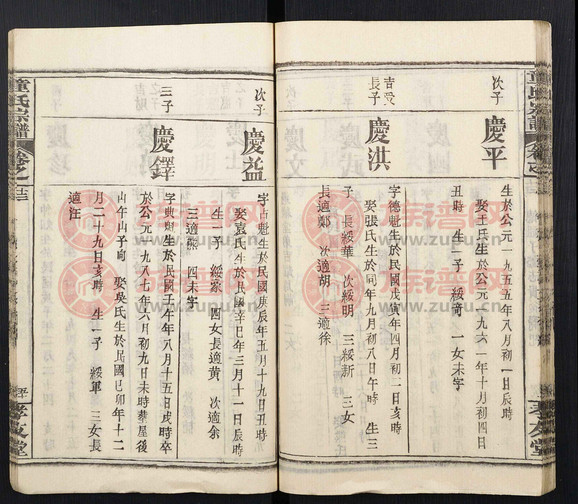 次子
慶平
生於公元一九五五年八月初一日辰時
娶王氏生於公元一九六一年十月初四日
丑時 生一子 綏奇 一女未字
吉受
長子
慶洪
字德魁生於民國戊寅年四月初二日亥時
娶張氏生於同年九月初八日午時 生三
子 長綏華 次綏明 三綏新 三女
長適鄭 次適胡 三適徐
次子
慶益
字占魁生於民國庚辰年五月十九日丑時
娶袁氏生於民國辛巳年三月十一日辰時
生一子 綏家 四女長適黃 次適余
三適熊 四未字
三子
慶鐸
字典魁生於民國壬午年八月十五日戌時卒
於公元一九八七年六月初九日未時葬屋後
山午山子向 娶吳氏生於民國己卯年十二
月二十九日亥時 生一子 綏軍 三女長
適汪
童氏宗譜
卷之
孝友堂
族谱网
www.zupu.cn